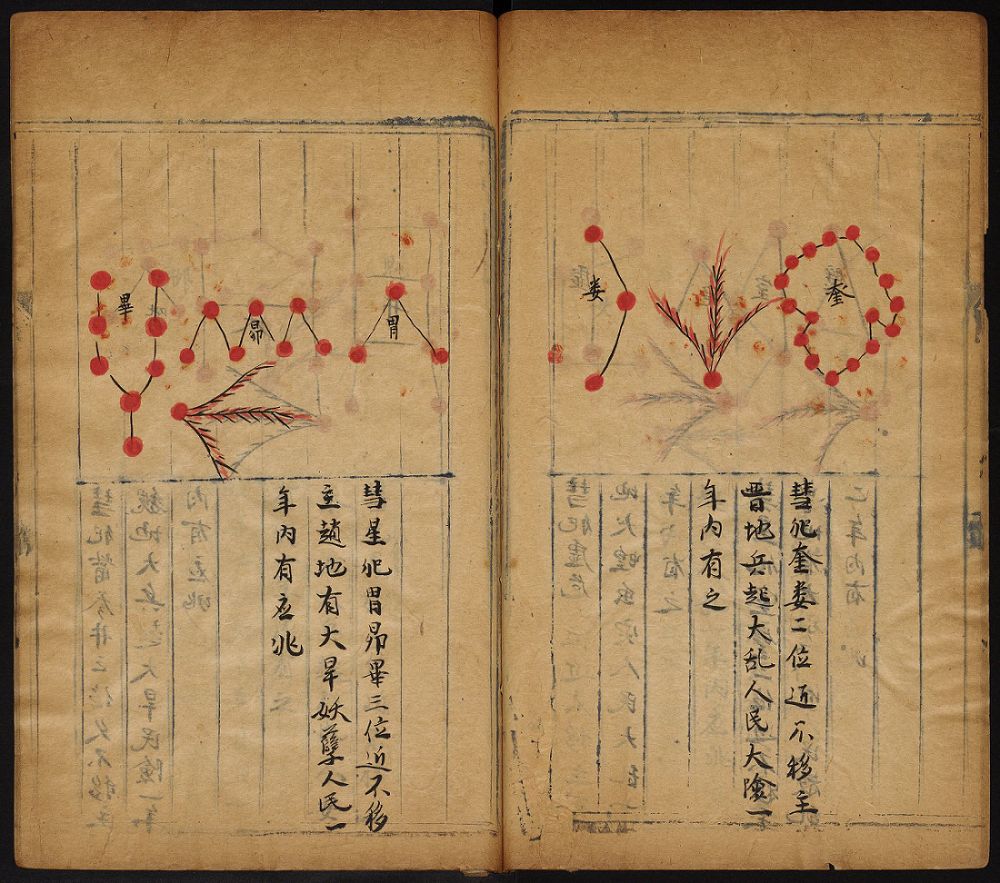 奎
娄
彗犯奎娄二位近不移主
晋地兵起大乱人民大險一
年内有之
胃
昴
畢
彗星犯胃昴畢三位近不移
主趙地有大旱妖孽人民一
年内有应兆